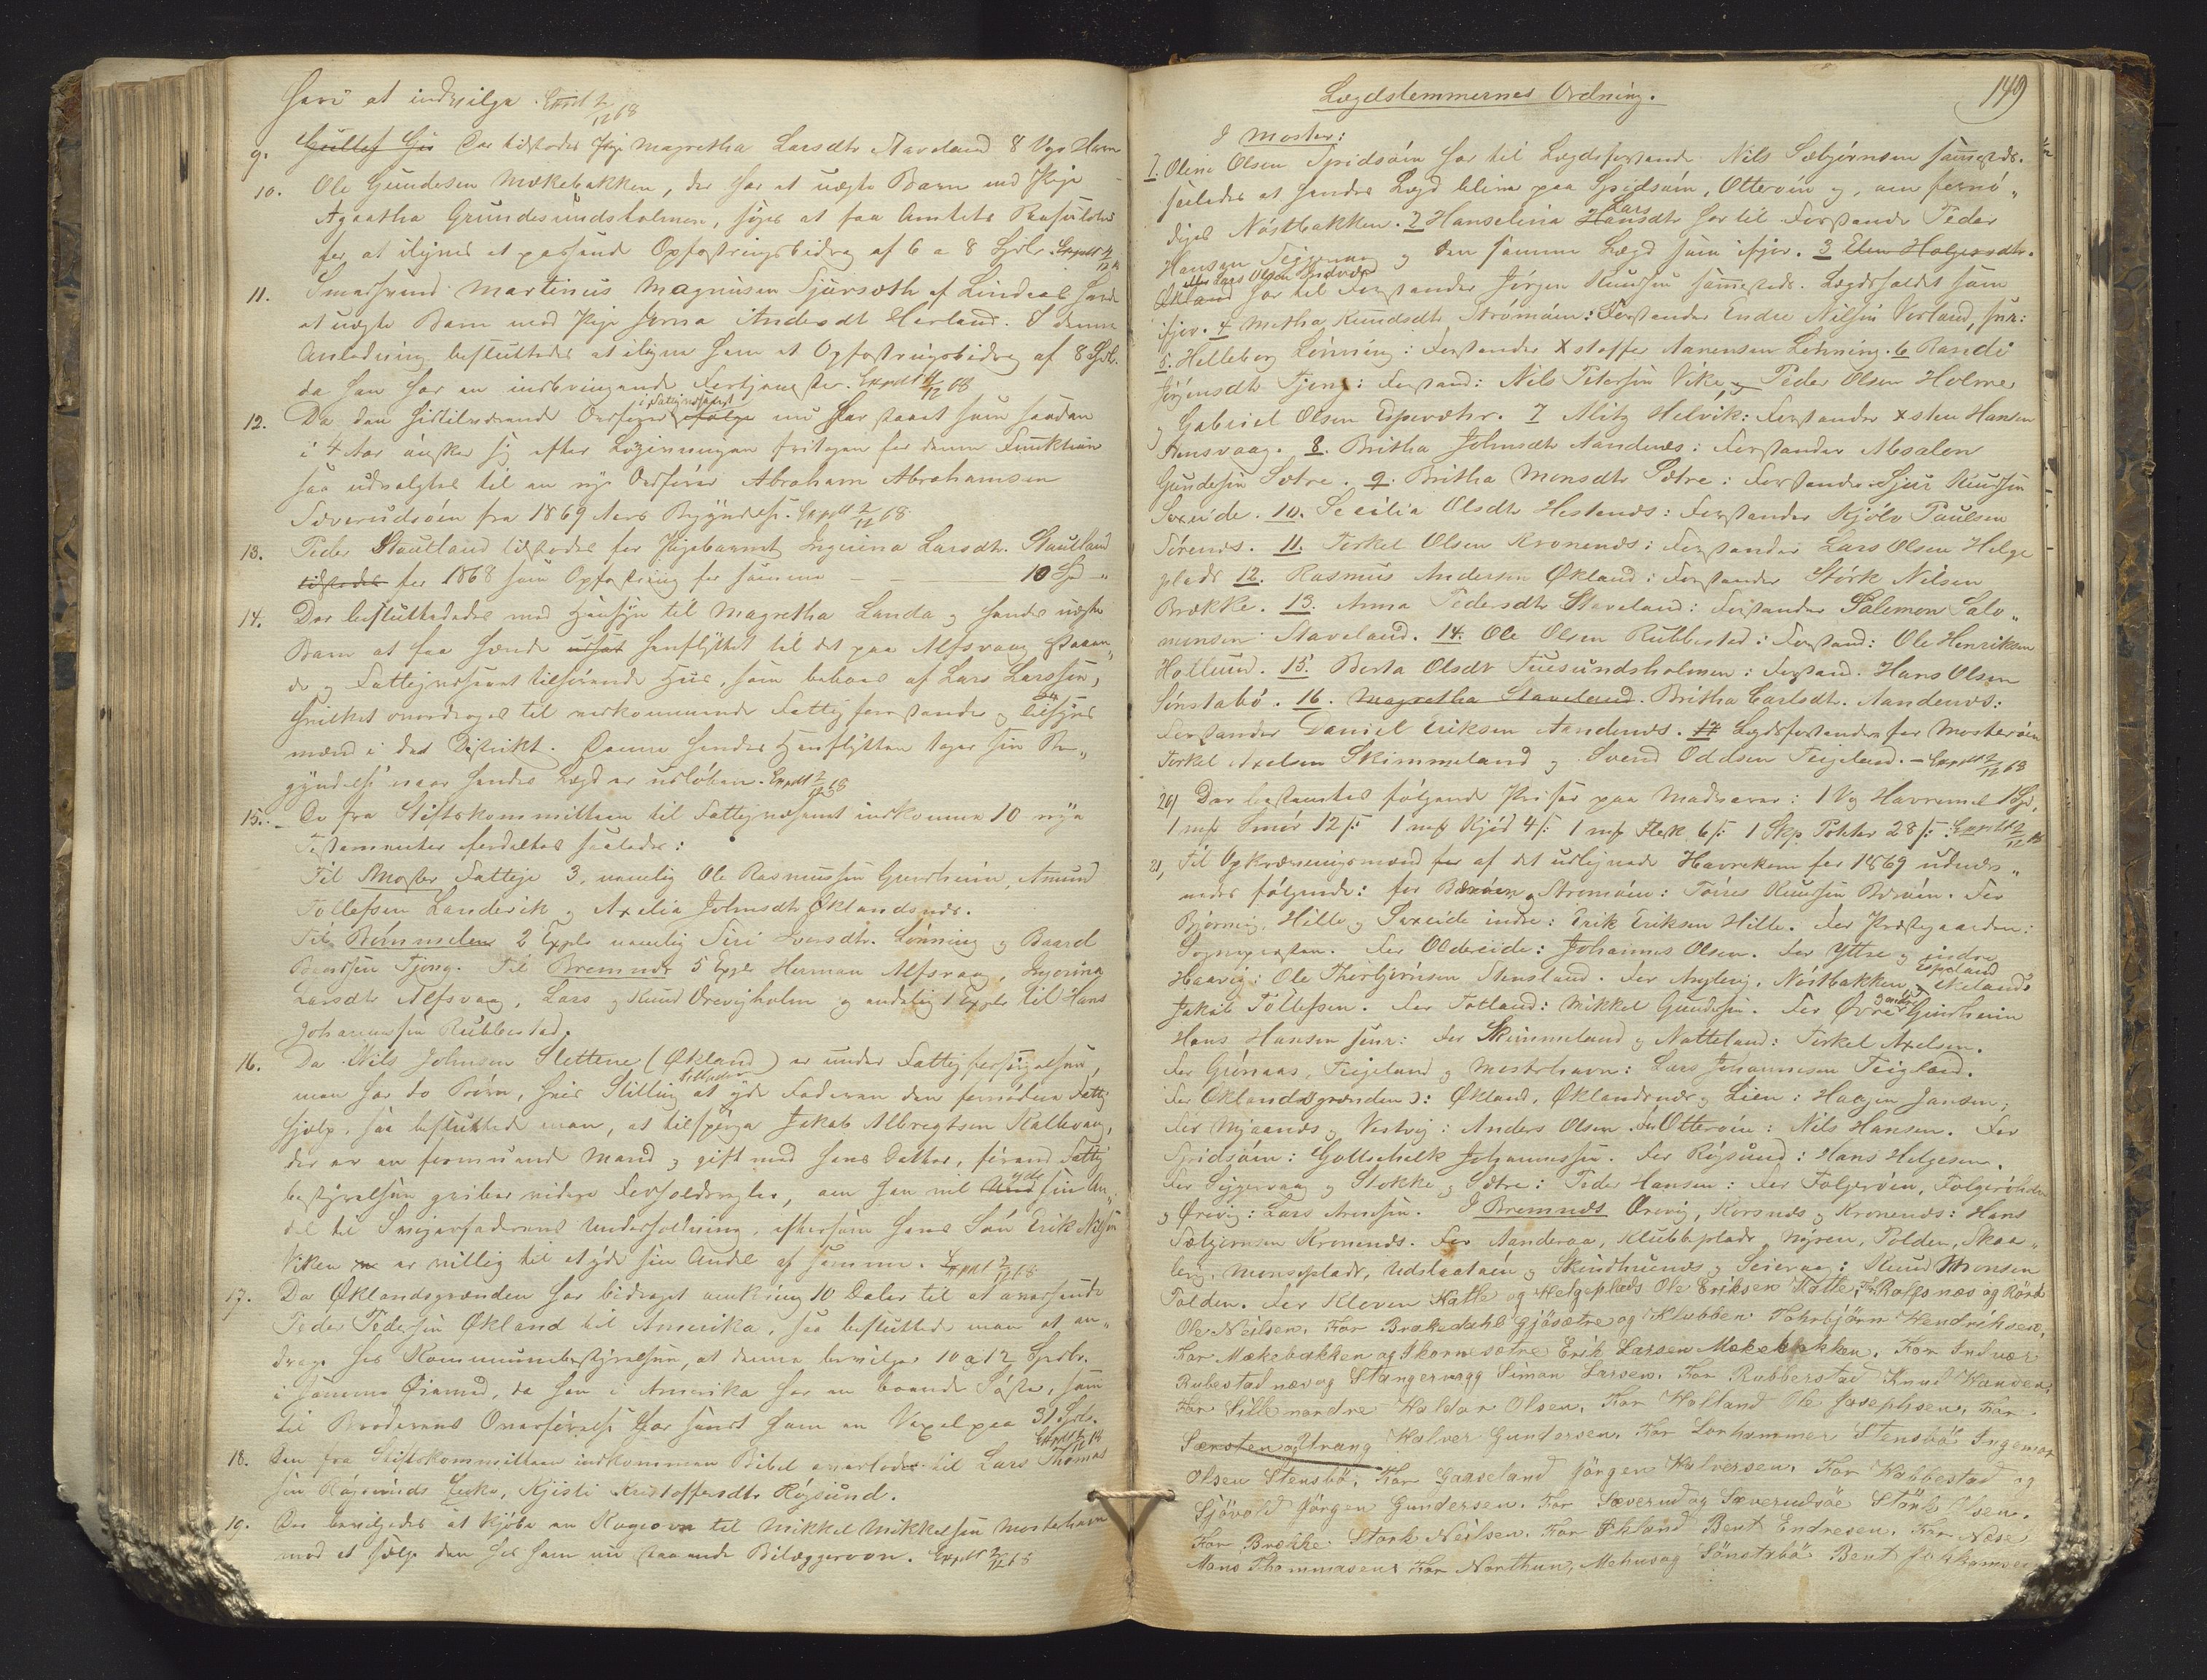 heri at indvilge. Expdt 2/12 68
9. Gullef Gu Der tilstodes Pige Magretha Larsdtr Staveland 8 Vger Havre
10. Ole Gundesen Mækebakken, der har et uægte Barn med Pige
Agaatha Grundesundsholmen, søges at faa Amtets Resulution
for at ilignes et passende Opfostringsbidrag af 6 a 8 Spdlr. Expedt 2/12 68
11. Smaasvend Martinus Magnusen Sjursæth af Lindaas havde
et uægte Barn med Pige Jorina Andersdt Harland. I denne
Anledning besluttedes at iligne ham et Opfostringsbidrag af 8 Spdl.
da han har en indbringende Fortjeneste. Expedt 4/12 68
12. Da den hidtilværende Ordfører i Fattigvæsenet ifølge nu har staaet som saadan
i 4 Aar ønsker sig efter Lovgivningen fritagen for denne Funktion
saa udvalgtes til en ny Ordfører Abraham Abrahamsen
Sæverudsøen fra 1869 Aars Begyndelse. Expdt 2/12 68
13. Peder Stautland tilstodes for Pigebarnet Ingerina Larsdtr. Stautland
tilstodes for 1868 som Opfostring for samme — — 10 Spd "
14. Der besluttedes med Hensyn til Magretha Landa og hendes uægte
Barn at faa hende udsat henflyttet til det paa Alfsvaag staaen„
de og Fattigvæsenet tilhørende Hus, som beboes af Lars Larssen,
hvilket overdroges til vedkommende Fattigforstander og Tilsyns
mænd i det Distrikt. Denne hendes Henflytten tager sin Be„
gyndelse naar hendes Lægd er udløben. Expdt 2/12 68
15. De fra Stiftskommitteen til Fattigvæsenet indkomne 10 nye
Testamenter fordeltes saaledes:
Til Moster Fattige 3, nemlig Ole Rasmussen Grindheim, Amund
Tollefsen Landevik og Axelia Johnsdtr Øklandsnæs.
Til Bømmelen 2 Expl nemlig Siri Iversdtr. Lønning og Baard
Baardsen Tjong. Til Bremnæs 5 Expl Herman Alfsvaag, Ingerina
Larsdtr Alfsvaag, Lars og Knud Urevigholm og endelig 1 Expl til Hans
Johannessen Rubbestad.
16. Da Nils Johnsen Slettene (Økland) er under Fattigforsørgelsen,
men har to Børn, hvis Stilling tillader at yde Faderen den fornødne Fattig
hjælp, saa besluttede man, at tilspørge Jakob Albregtsen Kallevaag,
der er en formuende Mand og gift med hans Datter, førend Fattig
bestyrelsen griber videre Forholdsregler, om han vil And yde sin An„
del til Svigerfaderens Underholdning, eftersom hans Søn Erik Nilsen
Viken er villig til at yde sin Andel af samme. Expdt 2/12 68
17. Da Øklandsgrænden har bidraget omkring 10 Daler til at oversende
Peder Pedersen Økland til Amerika, saa besluttede man at an„
drage hos Kommunebestyrelsen, at denne bevilger 10 a 12 Spdlr.
i samme Øiemed, da han i Amerika har en boende Søster, som
til Broderens Overførelse har sendt ham en Vexel paa 31 Spdlr.
Expdt 2/12 68
18. Den fra Stiftskommitteen indkomne Bibel overlodes til Lars Thomas
sen Røgsunds Enke, Kjisti Kristoffersdtr Røgsund.
19. Der bevilgedes at kjøbe en Kogeovn til Mikkel Mikkelsen Mosterhavn
mod at sælge den hos ham nu staaende Bilæggerovn. Expdt 2/12 68
149
Lægdslemmernes Ordning.
I Moster:
1. Oline Olsen Spidsøen har til Lægdsforstander Nils Sæbjørnsen sammesteds.
saaledes at hendes Lægd bliver paa Spidsøen, Otterøen og, om fornø„
diges Nøstbakken. 2 Hanselina Hansdtr Lars har til Forstander Peder
Hansen Siggervaag og den samme Lægd som ifjor. 3 Elen Holgersdtr.
Økland eller Lars Olsen Indvær har til Forstander Jørgen Knudsen sammesteds. Lægdholdet som
ifjor. 4 Metha Knudsdtr Strømøen: Forstander Endre Nilsen Vorland, sen:
5. Helleborg Lønning: Forstander Xstoffer Aanensen Lønning. 6 Randi
Jørgensdtr Tjong: Forstand: Nils Petersen Vike, og Peder Olsen Holme
og Gabriel Olsen Espevæhr. 7 Alitz Helvik: Forstander Xsten Hansen
Stensvaag. 8. Britha Johnsdtr Aandenæs: Forstander Absalon
Gundesen Sætre. 9. Britha Monsdtr Sætre: Forstander Sjur Knudsen
Sæxeide. 10. Sesilia Olsdtr Hestenæs: Forstander Kjølv Paulsen
Sørenæs. 11. Torkel Olsen Kronenæs: Forstander Lars Olsen Helge
plads 12. Rasmus Andersen Økland: Forstander Størk Nilsen
Brække. 13. Anna Pedersdtr Staveland: Forstander Salemon Salo„
monsen Staveland. 14. Ole Olsen Rubbestad: Forstand: Ole Henriksen
Hollund. 15. Berta Olsdtr Fuesundsholmen: Forstand. Hans Olsen
Sønstabø. 16. Magretha Staveland. Britha Carlsdtr. Aandenæs:
Forstander Daniel Eriksen Aandenæs. 17 Lægdsforstandere for Mosterøen
Torkel Axelsen Skimmeland og Svend Oddsen Teigeland. — Expdt 2/12 68
20) Der bestemtes følgende Priser paa Madvarer: 1 Vg Havremel 1 Spd,
1 mrk Smør 12 s: 1 mrk Kjød 4 s: 1 mrk Flesk 6 s: 1 Skp Poteter 28 s: Expdt 2/12 68
21, Til Opkrævningsmænd for af det udlignede Havrekorn for 1869 udnæv„
nedes følgende: for Børøen og Strømøen: Torres Knudsen Børøen. For
Bjørnevig, Hille og Sæxeide indre: Erik Eriksen Hille. For Præstegaarden:
Sognepresten. For Oldereide: Johannes Olsen. For Yttre og indre
Haavig: Ole Thorbjørnsen Stensland. For Anglevig, Nøstbakken, Espeland og Eikeland:
Jakob Tollefsen. For Totland: Mikkel Gundesen. For Øvre og nedre Grindheim
Hans Hansen senr: For Skimmeland og Natteland: Torkel Axelsen.
For Grønaas, Teigeland og Mosterhavn: Lars Johannesen Teigland.
For Øklandsgrænden): Økland, Øklandsnæs og Lien: Haagen Jansen;
For Mjaanæs og Vestvig: Anders Olsen. For Otterøen: Nils Hansen. For
Spidsøen: Gottschalk Johannessen. For Røgsund: Hans Helgesen.
For Siggervaag og Stokke og Sætre: Peder Hansen: For Folgerøen, Folgerøholm
og Ørevig: Lars Arnesen. I Bremnæs Urevig, Kørsnæs og Kronenæs: Hans
Sæbjørnsen Kronenæs. For Aanderaa, Klubbeplads, Mýren, Tolden, Skaa„
leg, Monseplads, Udslaatøen og Skindhuenæs og Seievaag: Knud Monsen
Tolden. For Kleven Katle og Helgeplads Ole Eriksen Katle, For Rolfsnæs og Rörd
Ole Neilsen. For Brakedahl Gjösætre og Klubben Tohrbjörn Hendriksen.
For Mækebakken og Skornesætre Erik Larsen Mækebakken. For Indvær
Rubestadnæs og Stangervagg Siman Larsen. For Rubberstad Knud Handers
For Sille nordre Haldor Olsen. For Holland Ole Josephsen. For
Særsten og Urang Halver Gundersen. For Lorhammer Stensbö Ingemar
Olsen Stensbö. For Gaaseland Jörgen Halversen. For Habbestad og
Sjövold Jörgen Gundersen. For Sæverud og Sæverudsöe Störk Olsen.
For Brække Störk Neilsen. For Økland Bent Endresen. For Næse
Mons Thommasen. For Northun, Mehus og Sönstabö Bent Johannesen